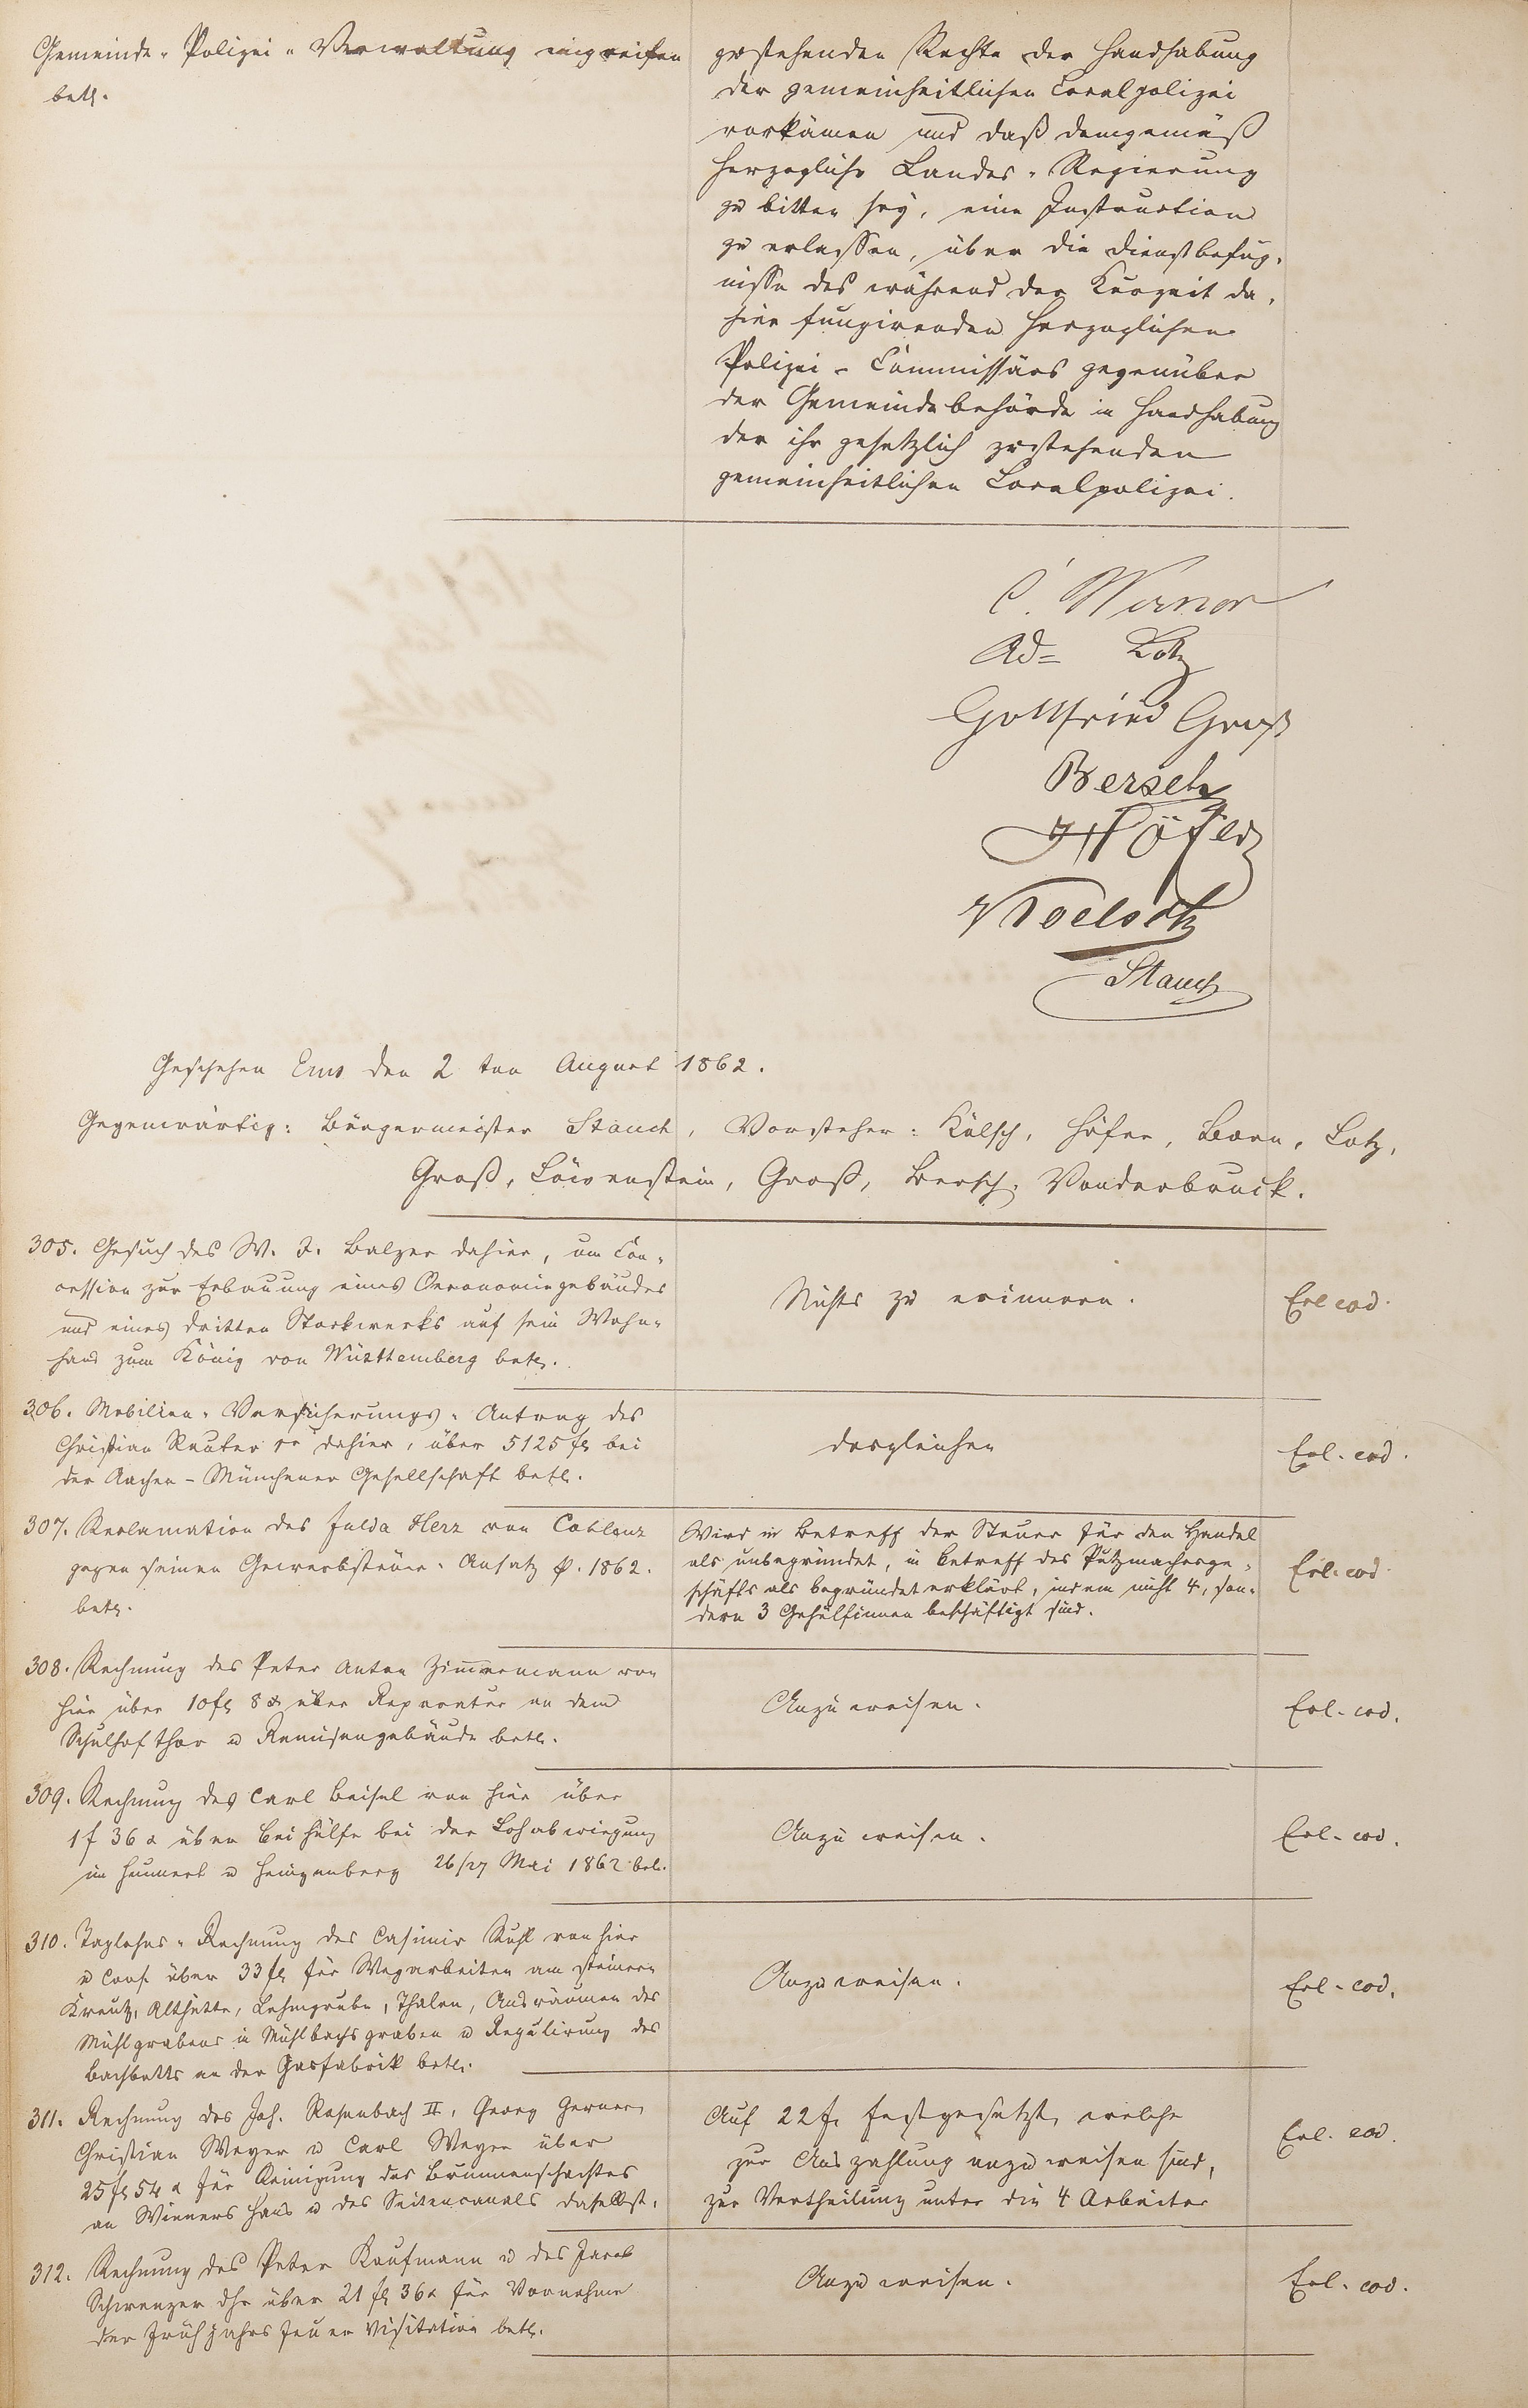 Gemeinde-Polizei-Verwaltung eingreifen
betr.
zustehenden Rechte der Handhabung
der gemeinheitlichen Localpolizei
vorkämen und daß demgemäß
Herzogliche Landes-Regierung
zu bitten sey, eine Instruction
zu erlassen, über die Dienstbefug-
nisse des während der Kurzeit da-
hier fungirenden Herzoglichen
Polizei-Commissärs gegenüber
der Gemeindebehörde in Handhabung
der ihr gesetzlich zustehenden
gemeinheitlichen Localpolizei.
C. Werner
Ad= Lotz
Gottfried Groß
Bersch
Höfer
Koelsch
Stauch
Geschehen Ems den 2 ten August 1862.
Gegenwärtig: Bürgermeister Stauch, Vorsteher: Kölsch, Höfer, Born, Lotz,
Groß, Löwenstein, Groß, Bersch, Vonderbruck.
305. Gesuch des W. J. Balzer dahier, um Con-
cession zur Erbauung eines Oeconomiegebäudes
und eines dritten Stockwerks auf sein Wohn-
haus zum König von Württemberg betr.
Nichts zu erinnern.
Erl eod.
306. Mobilien-Versicherungs-Antrag des
Christian Reuter sr dahier, über 5125 fl bei
der Aachen-Münchener Gesellschaft betr.
desgleichen
Erl. eod.
307. Reclamation des Julda Herz von Coblenz
gegen seinen Gewerbsteuer-Ansatz p. 1862.
betr.
Wird in Betreff der Steuer für den Handel
als unbegründet, in Betreff des Putzmacherge-
schäfts als begründet erklärt, indem nicht 4, son-
dern 3 Gehülfinnen beschäftigt sind.
Erl. eod.
308. Rechnung des Peter Anton Zimmermann von
hier über 10 fl 8 x über Reparatur an dem
Schulhofthor u Remisengebäude betr.
Anzuweisen.
Erl. eod.
309. Rechnung des Carl Beisel von hier über
1 f 36 x über Beihülfe bei der Lohabwiegung
im Hümerk u Heingenberg 26/27 Mai 1862 betr.
Anzuweisen.
Erl. eod.
310. Taglohns-Rechnung des Casimir Kuhl von hier
u Cons. über 33 fl für Wegarbeiten am steinern
Kreutz, Althütte, Lehmgrube, Thalen, Ausräumen des
Mühlgrabens in Mühlbachsgraben u Regulirung des
Bachbetts an der Gasfabrik betr.
Anzuweisen.
Erl. eod.
311. Rechnung des Joh. Rosenbach II, Georg Germer,
Christian Weyer u Carl Weyer über
25 fl 54 x für Reinigung des Brunnenschachtes
an Winners Haus u des Seitencanals daselbst.
Auf 22 f. festgesetzt, welche
zur Auszahlung anzuweisen sind,
zur Vertheilung unter die 4 Arbeiter
Erl. eod.
312. Rechnung des Peter Kaufmann u des Jacob
Schwenzer dhr über 21 fl 36 x für Vornahme
der Frühjahrs Feuer Visitation betr.
Anzuweisen.
Erl. eod.